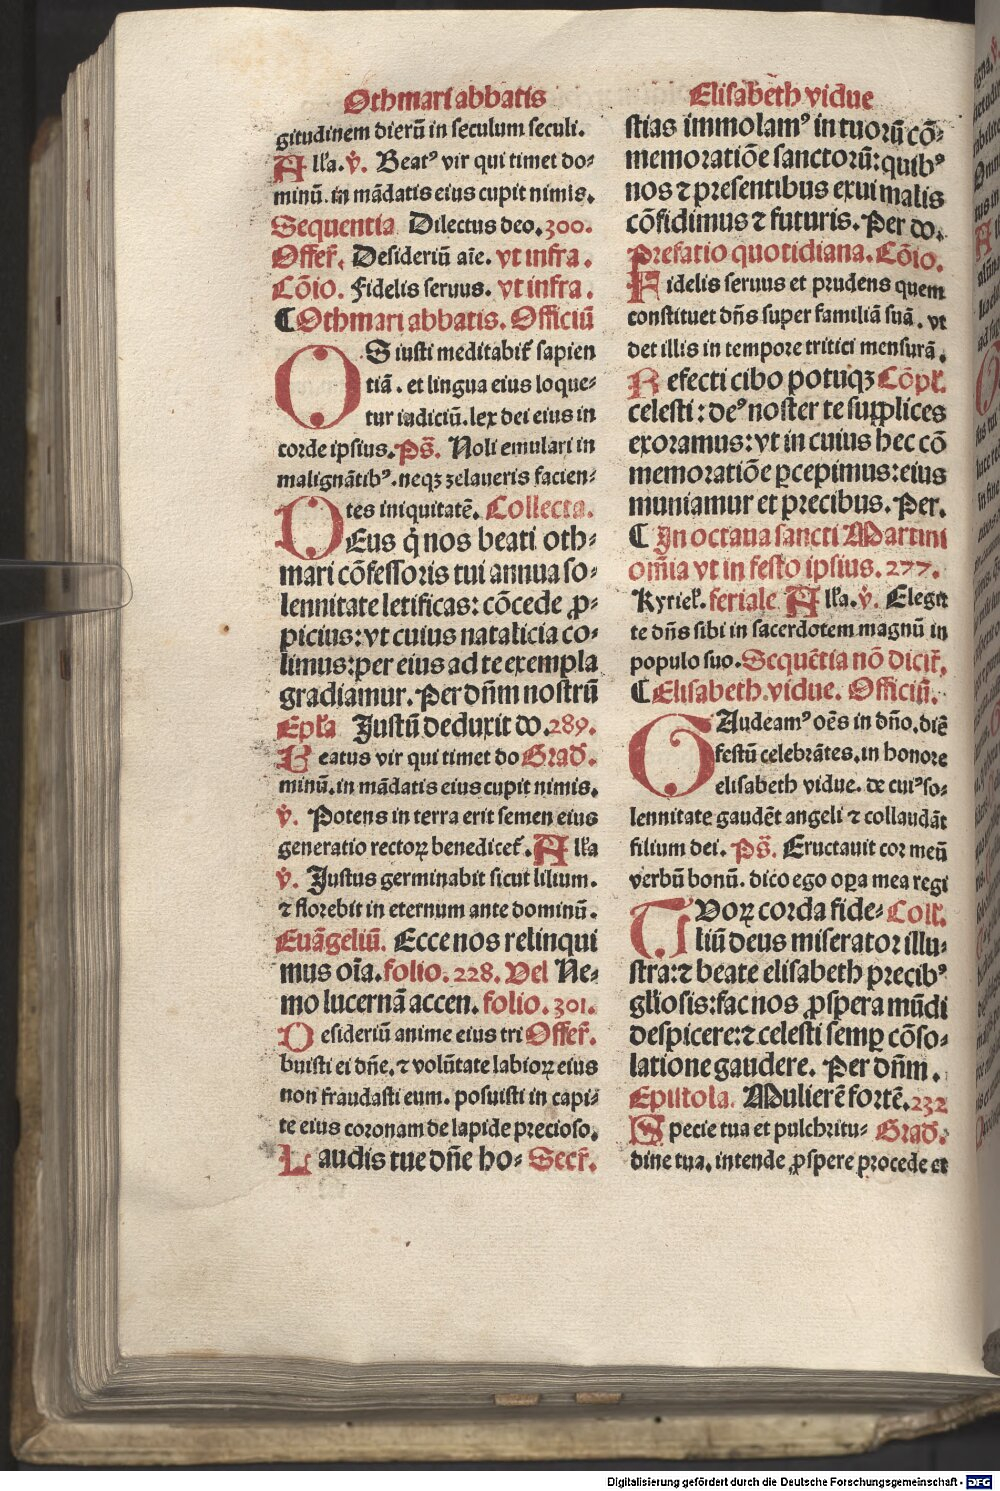 Othmari abbatis
gitudinem dierū in seculum seculi.
Alła. ṽ. Beatꝰ vir qui timet do-
minū. in mādatis eius cupit nimis.
Sequentia Dilectus deo. 300.
Offeř. Desideriū aīe. vt infra.
Cōio. Fidelis seruus. vt infra.
¶ Othmari abbatis. Officiū
OS iusti meditabiť sapien
tiā. et lingua eius loque-
tur iudiciū. lex dei eius in
corde ipsius. Ps̄. Noli emulari in
malignātibꝰ. neqꝫ zelaueris facien-
tes iniquitatē. Collecta.
DEus q̇ nos beati oth-
mari cōfessoris tui annua so-
lennitate letificas: cōcede ꝓ-
picius: vt cuius natalicia co-
limus: per eius ad te exempla
gradiamur. Per dn̄m nostrū
Epła Justū deduxit do. 289.
Beatus vir qui timet do Grad̄.
minū. in mādatis eius cupit nimis.
ṽ. Potens in terra erit semen eius
generatio rectoꝝ benediceť. Alła
ṽ. Justus germinabit sicut lilium.
⁊ florebit in eternum ante dominū.
Euāgeliū. Ecce nos relinqui
mus oīa. folio. 228. Vel Ne-
mo lucernā accen. folio. 301.
Desideriū anime eius tri Offeř.
buisti ei dn̄e. ⁊ volūtate labioꝝ eius
non fraudasti eum. posuisti in capi-
te eius coronam de lapide precioso.
Laudis tue dn̄e ho- Secř.
Elisabeth vidue
stias immolamꝰ in tuorū cō-
memoratiōe sanctorū: quibꝰ
nos ⁊ presentibus exui malis
cōfidimus ⁊ futuris. Per do.
Prefatio quotidiana. Cōio.
Fidelis seruus et prudens quem
constituet dn̄s super familiā suā. vt
det illis in tempore tritici mensurā.
Refecti cibo potuqꝫ Cōpł.
celesti: deꝰ noster te supplices
exoramus: vt in cuius hec cō
memoratiōe ꝑcepimus: eius
muniamur et precibus. Per.
¶ In octaua sancti Martini
om̄ia vt in festo ipsius. 277.
Kyrieł. feriale Alła. ṽ. Elegit
te dn̄s sibi in sacerdotem magnū in
populo suo. Sequētia nō diciť.
¶ Elisabeth vidue. Officiū.
GAudeamꝰ oēs in dn̄o. diē
festū celebrātes. in honore
elisabeth vidue. de cuiꝰ so-
lennitate gaudēt angeli ⁊ collaudāt
filium dei. Ps̄. Eructauit cor meū
verbū bonū. dico ego oꝑa mea regi
TVoꝝ corda fide- Coll̄.
liū deus miserator illu-
stra: ⁊ beate elisabeth precibꝰ
głiosis: fac nos ꝓspera mūdi
despicere: ⁊ celesti semꝑ cōso-
latione gaudere. Per dn̄m.
Epistola. Mulierē fortē. 232
Specie tua et pulchritu- Grad̄.
dine tua. intende ꝓspere procede et
Digitalisierung gefördert durch die Deutsche Forschungsgemeinschaft - DFG